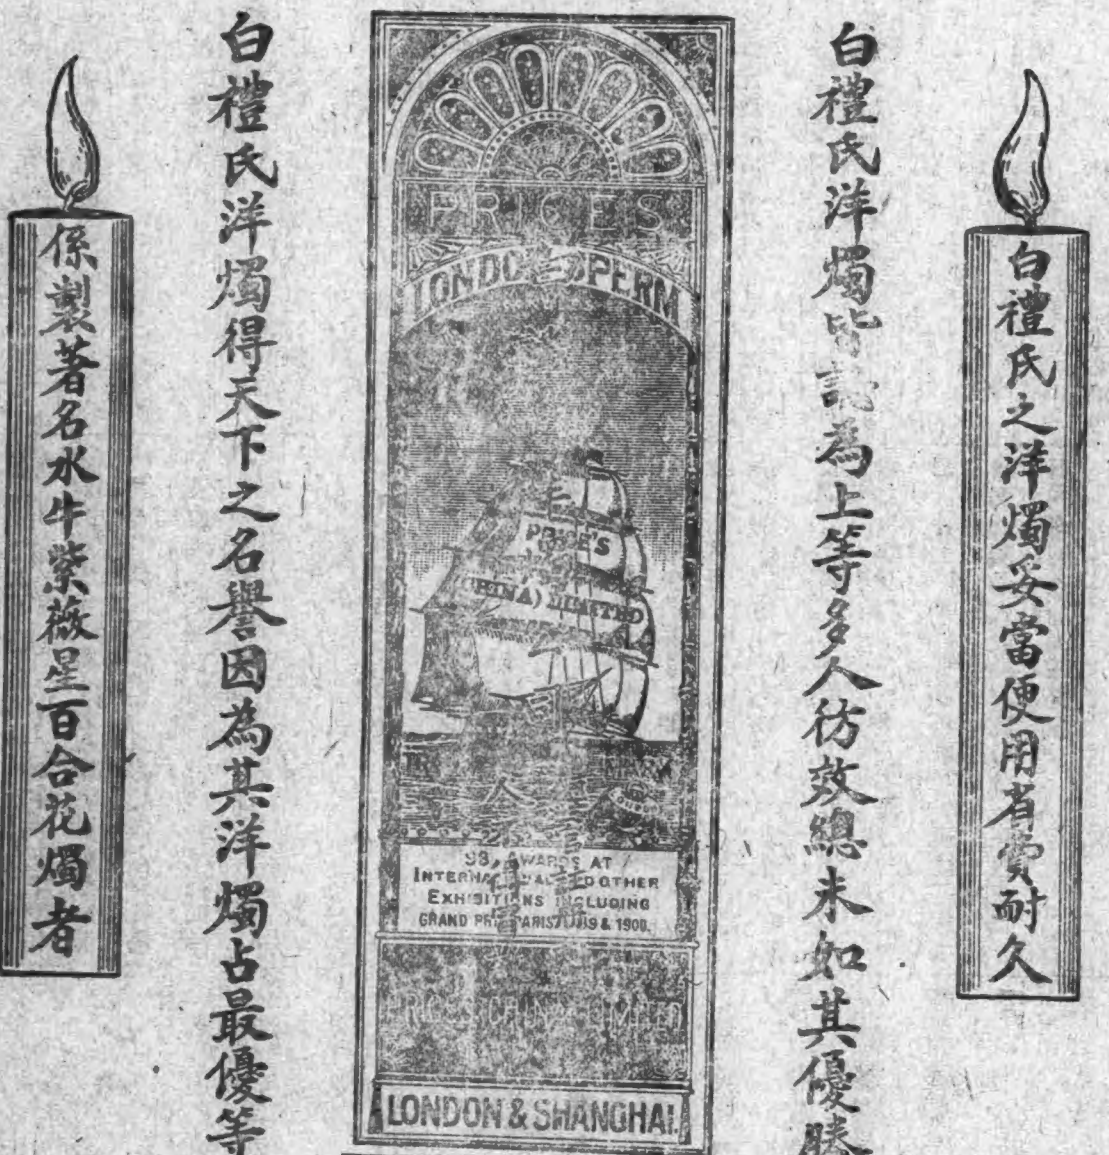 白禮氏之洋燭妥當便用省費耐久
白禮氏洋燭皆認為上等多人彷效總未如其優勝
PRICE'S
LONDON SPERM
PRICE'S
(CHINA) LIMITED
TRADE MARK
93, AWARDS AT
INTERNATIONAL AND OTHER
EXHIBITIONS INCLUDING
GRAND PRIX PARIS & 1900.
PRICE'S CHINA LIMITED
LONDON & SHANGHAI.
白禮氏洋燭得天下之名譽因為其洋燭占最優等
係製著名水牛紫薇星百合花燭者